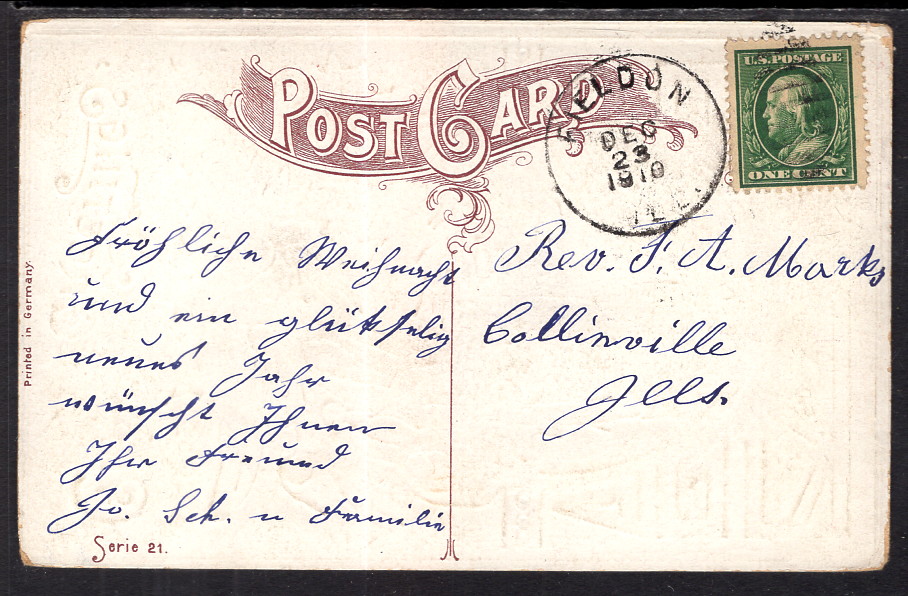 POST CARD
DEC
23
1910
ILL.
U.S. POSTAGE
ONE CENT
Fröhliche Weihnacht
und ein glükselig
neues Jahr
wünscht Ihnen
Ihr Freund
Jo. Sch. u Familie
Rev. F. A. Marks
Collinville
Ills.
Printed in Germany.
Serie 21.